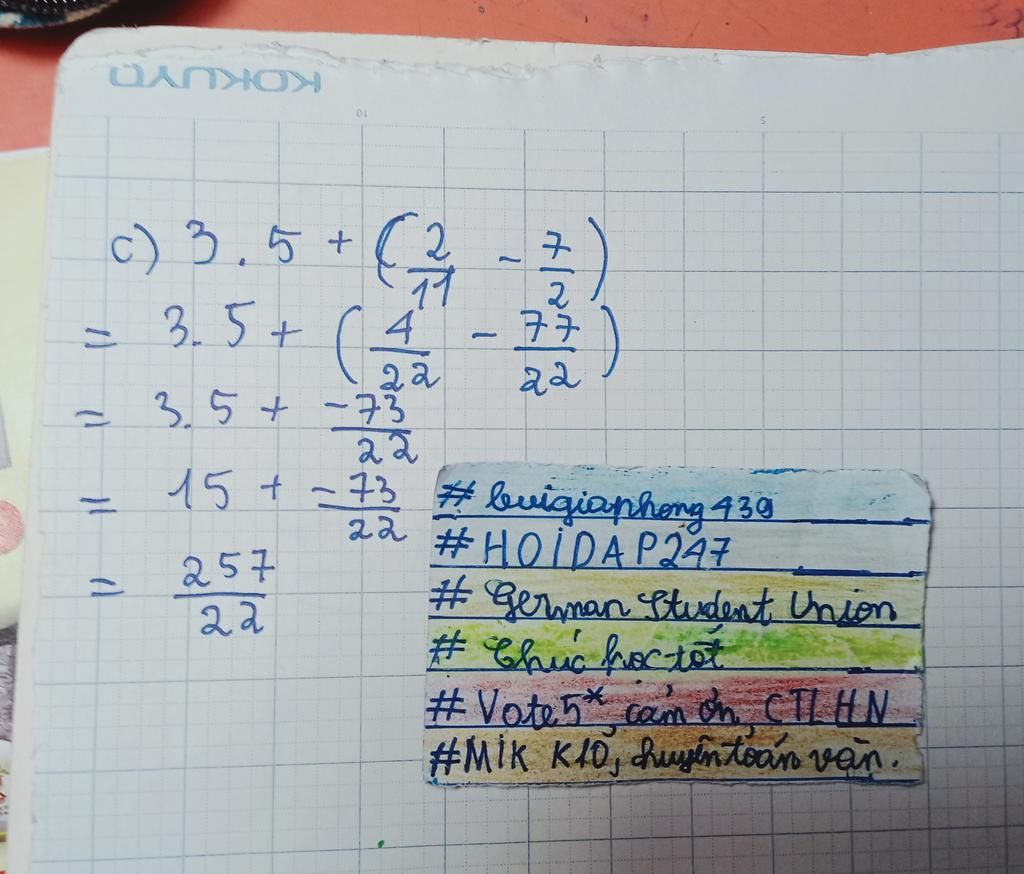 KOKUYO
10 5
c) 3.5 + (2/11 - 7/2)
= 3.5 + (4/22 - 77/22)
= 3.5 + -73/22
= 15 + -73/22
= 257/22
# buigiaphong439
# HOIDAP247
# German Student Union
# Chúc học tốt
# Vote 5*, cảm ơn, CTLHN
#MIK K10, chuyên toán văn.